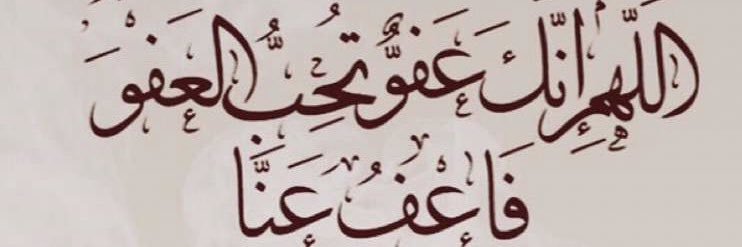 اللّٰهمِ إنّكَ عَفوٌّ تُحِبُّ العَفوَ
فَاعْفُ عَنَّا